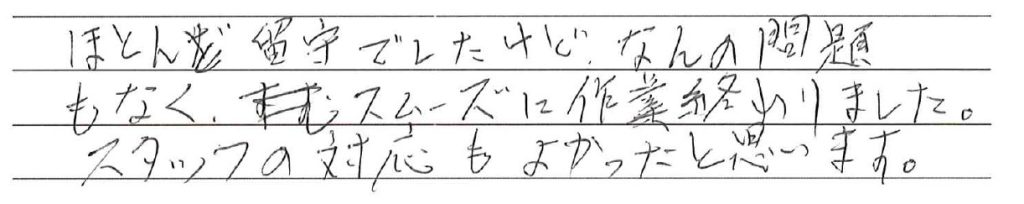 ほとんど留守でしたけど、なんの問題
もなく、スムーズに作業終わりました。
スタッフの対応もよかったと思います。